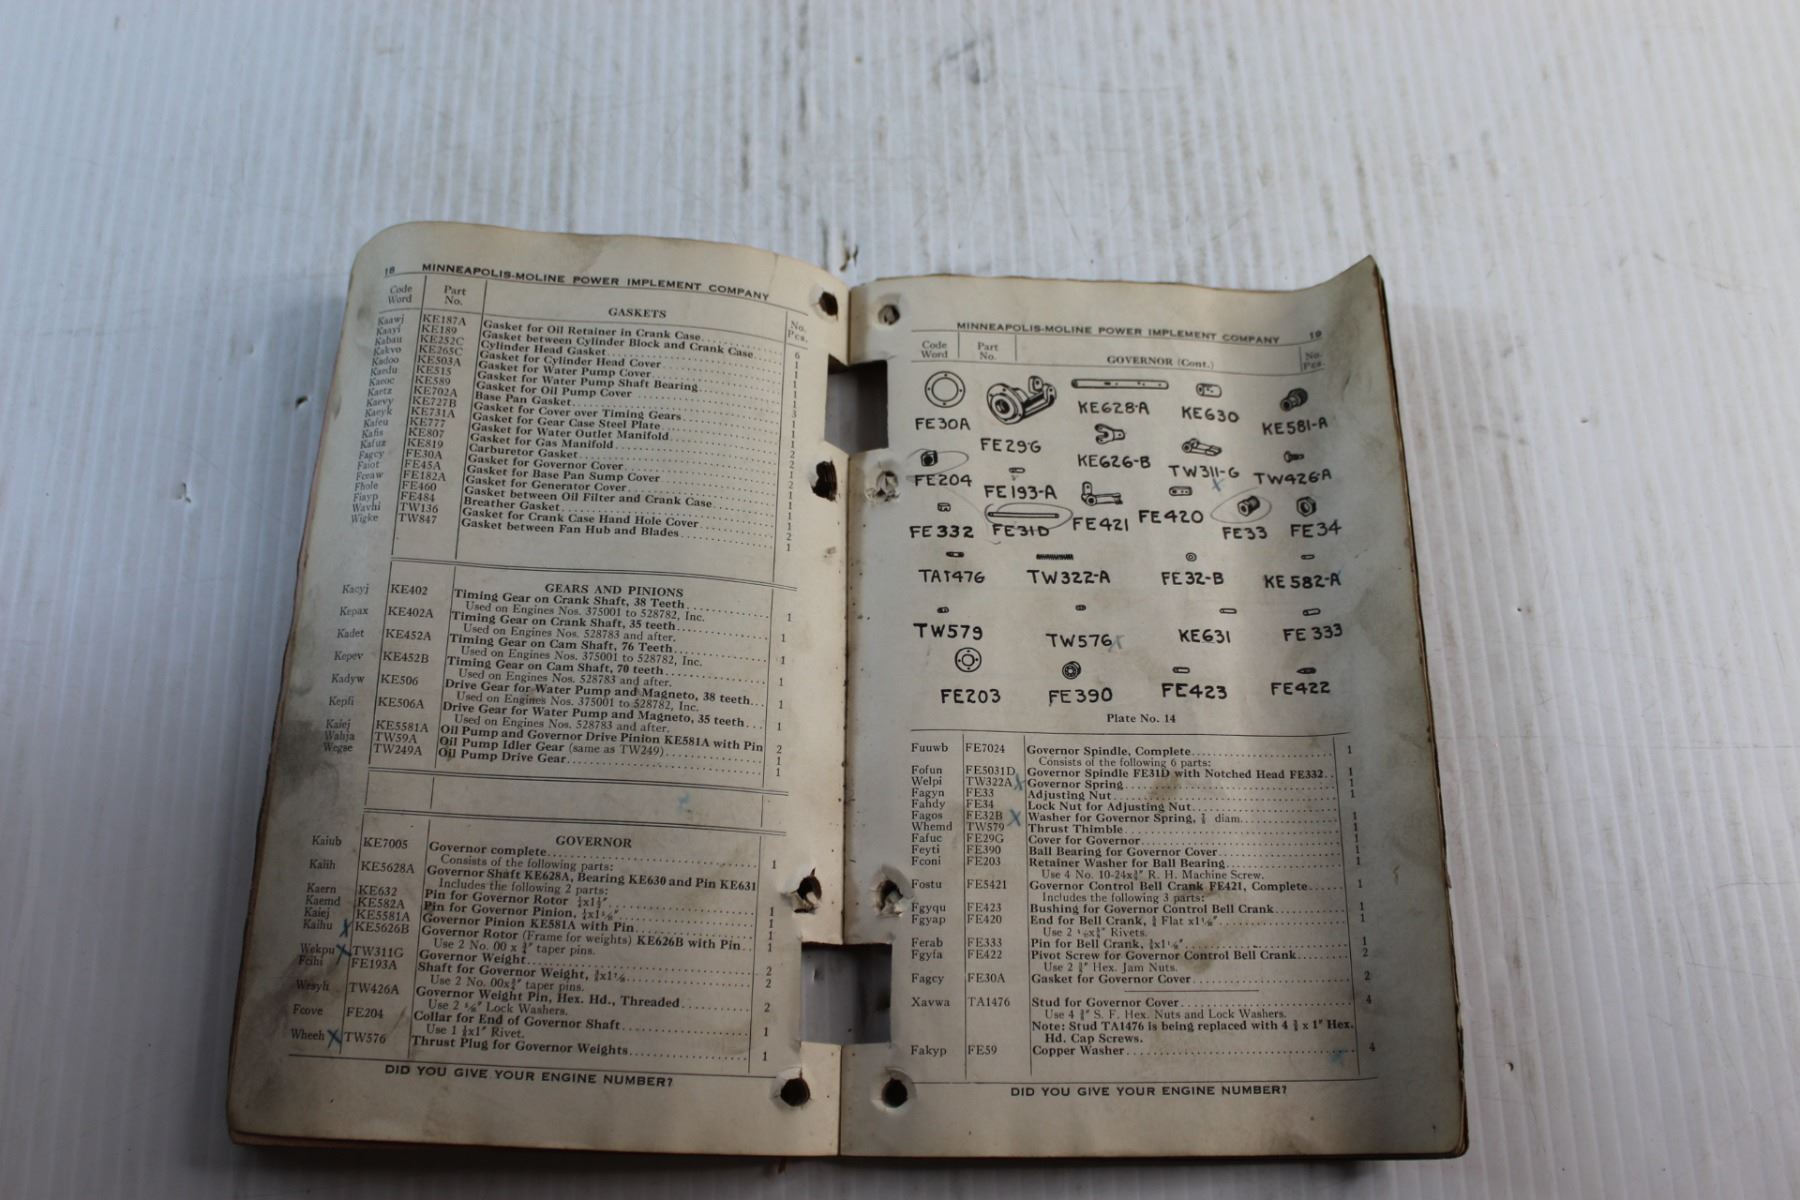 18 MINNEAPOLIS-MOLINE POWER IMPLEMENT COMPANY
Code Word Part No. No. Pcs.
GASKETS
Kaawj KE187A Gasket for Oil Retainer in Crank Case 6
Kaayi KE189 Gasket between Cylinder Block and Crank Case 1
Kabau KE252C Cylinder Head Gasket 1
Kakvo KE265C Gasket for Cylinder Head Cover 1
Kadoo KE503A Gasket for Water Pump Cover 1
Kaedu KE515 Gasket for Water Pump Shaft Bearing
Kaeoc KE589 Gasket for Oil Pump Cover
Kaetz KE702A Base Pan Gasket
Kaevy KE727B Gasket for Cover over Timing Gears
Kaeyk KE731A Gasket for Gear Case Steel Plate
Kafeu KE777 Gasket for Water Outlet Manifold
Kafis KE807 Gasket for Gas Manifold
Kafuz KE819 Carburetor Gasket
Fagcy FE30A Gasket for Governor Cover
Faiot FE45A Gasket for Base Pan Sump Cover
Fceaw FE182A Gasket for Generator Cover
Fhole FE460 Gasket between Oil Filter and Crank Case
Fiayp FE484 Breather Gasket
Wavhi TW136 Gasket for Crank Case Hand Hole Cover 2
Wigke TW847 Gasket between Fan Hub and Blades 1
GEARS AND PINIONS
Kacyj KE402 Timing Gear on Crank Shaft, 38 Teeth 1
Used on Engines Nos. 375001 to 528782, Inc.
Kepax KE402A Timing Gear on Crank Shaft, 35 teeth 1
Used on Engines Nos. 528783 and after.
Kadet KE452A Timing Gear on Cam Shaft, 76 Teeth 1
Used on Engines Nos. 375001 to 528782, Inc.
Kepev KE452B Timing Gear on Cam Shaft, 70 teeth 1
Used on Engines Nos. 528783 and after.
Kadyw KE506 Drive Gear for Water Pump and Magneto, 38 teeth 1
Used on Engines Nos. 375001 to 528782, Inc.
Kepfi KE506A Drive Gear for Water Pump and Magneto, 35 teeth 1
Used on Engines Nos. 528783 and after.
Kaiej KE5581A Oil Pump and Governor Drive Pinion KE581A with Pin 2
Wahja TW59A Oil Pump Idler Gear (same as TW249) 1
Wegse TW249A Oil Pump Drive Gear 1
GOVERNOR
Kaiub KE7005 Governor complete 1
Consists of the following parts:
Kalih KE5628A Governor Shaft KE628A, Bearing KE630 and Pin KE631
Includes the following 2 parts:
Kaern KE632 Pin for Governor Rotor 1
Kaemd KE582A Pin for Governor Pinion, 1
Kaiej KE5581A Governor Pinion KE581A with Pin 1
Kaihu X KE5626B Governor Rotor (Frame for weights) KE626B with Pin 1
Use 2 No. 00 x ¾" taper pins.
Wekpu X TW311G Governor Weight 2
Fcihi FE193A Shaft for Governor Weight, 2
Use 2 No. 00x¾" taper pins.
Wesyh TW426A Governor Weight Pin, Hex. Hd., Threaded 2
Use 2 Lock Washers.
Fcove FE204 Collar for End of Governor Shaft 1
Use 1 Rivet.
Wheeh X TW576 Thrust Plug for Governor Weights 1
DID YOU GIVE YOUR ENGINE NUMBER?
MINNEAPOLIS-MOLINE POWER IMPLEMENT COMPANY 19
Code Word Part No. No. Pcs.
GOVERNOR (Cont.)
FE30A FE29G KE628-A KE630 KE581-A
FE204 FE193-A KE626-B TW311-G TW426-A
X
FE332 FE31D FE421 FE420 FE33 FE34
TA1476 TW322-A FE32-B KE582-A
TW579 TW576 X KE631 FE333
FE203 FE390 FE423 FE422
Plate No. 14
Fuuwb FE7024 Governor Spindle, Complete 1
Consists of the following 6 parts:
Fofun FE5031D Governor Spindle FE31D with Notched Head FE332 1
Welpi TW322A X Governor Spring 1
Fagyn FE33 Adjusting Nut 1
Fahdy FE34 Lock Nut for Adjusting Nut
Fagos FE32B X Washer for Governor Spring, diam. 1
Whemd TW579 Thrust Thimble 1
Fafuc FE29G Cover for Governor 1
Feyti FE390 Ball Bearing for Governor Cover 1
Fconi FE203 Retainer Washer for Ball Bearing 1
Use 4 No. 10-24x¾" R. H. Machine Screw.
Fostu FE5421 Governor Control Bell Crank FE421, Complete 1
Includes the following 3 parts:
Fgyqu FE423 Bushing for Governor Control Bell Crank 1
Fgyap FE420 End for Bell Crank, Flat 1
Use 2 Rivets.
Ferab FE333 Pin for Bell Crank, 1
Fgyfa FE422 Pivot Screw for Governor Control Bell Crank 2
Use 2 Hex. Jam Nuts.
Fagcy FE30A Gasket for Governor Cover 2
Xavwa TA1476 Stud for Governor Cover 4
Use 4 S. F. Hex. Nuts and Lock Washers.
Note: Stud TA1476 is being replaced with 4 x 1" Hex.
Hd. Cap Screws.
Fakyp FE59 Copper Washer 4
DID YOU GIVE YOUR ENGINE NUMBER?